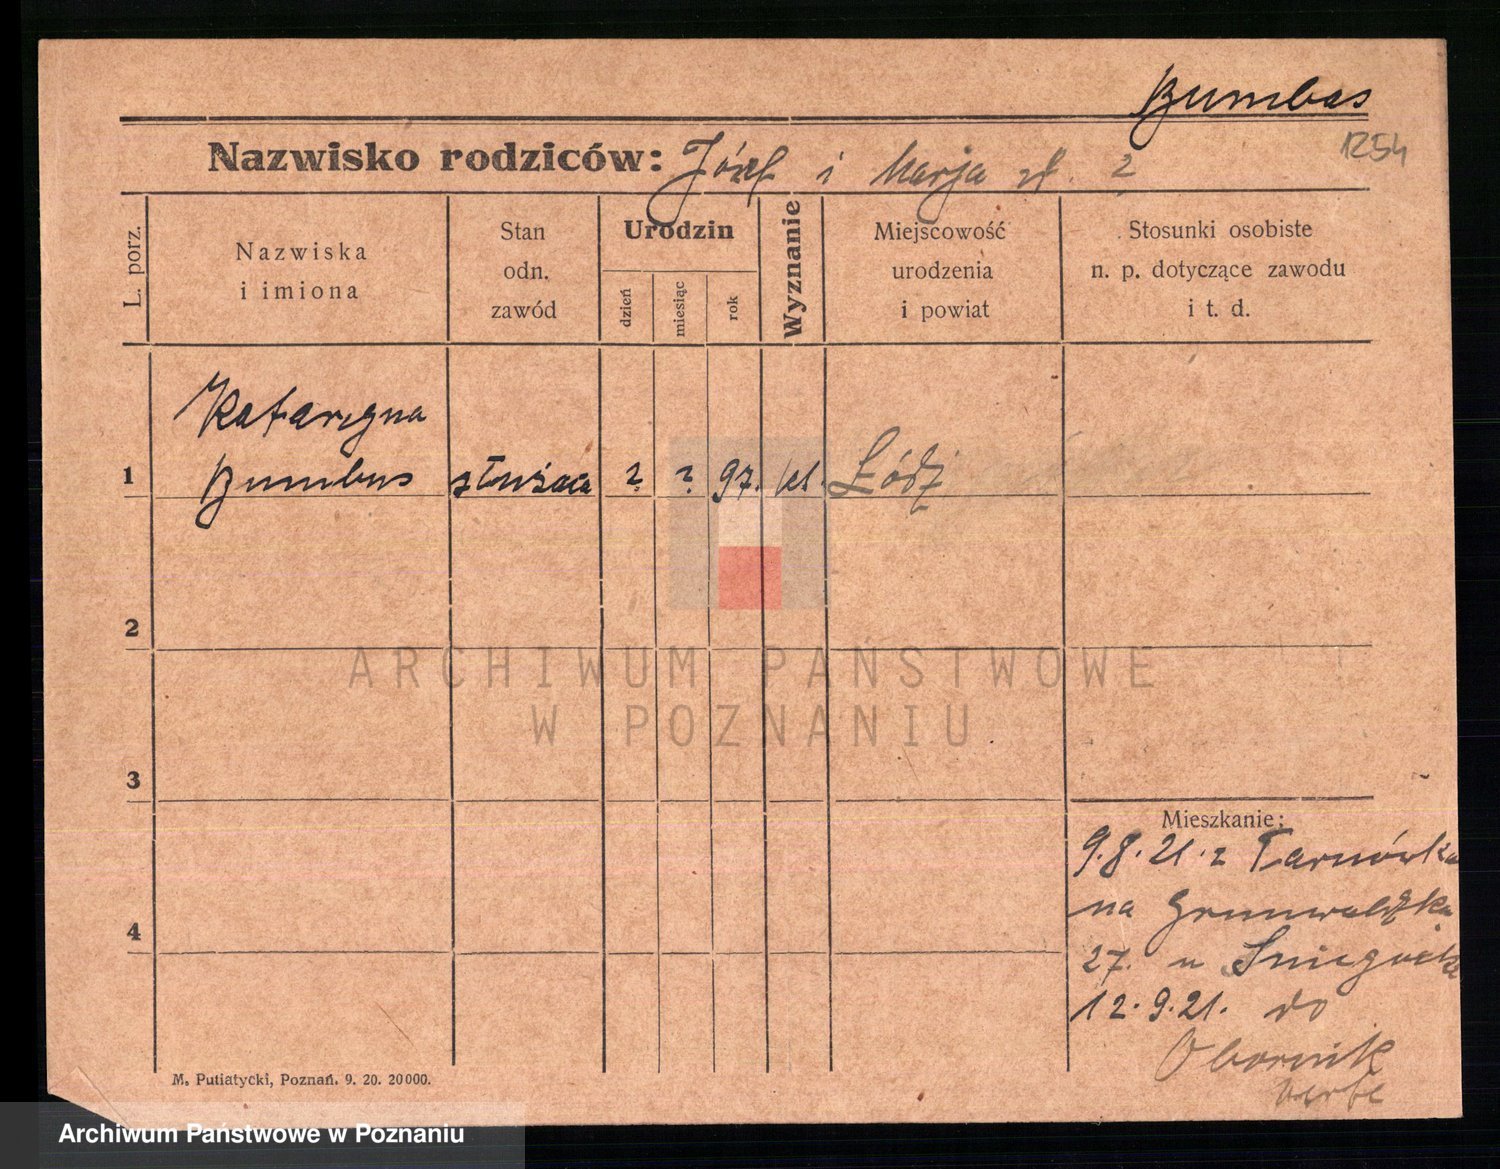 Bumbas
1254
Nazwisko rodziców: Józef i Marja zd. ?
L. porz.
Nazwiska
i imiona
Stan
odn.
zawód
Urodzin
dzień
miesiąc
rok
Wyznanie
Miejscowość
urodzenia
i powiat
Stosunki osobiste
n. p. dotyczące zawodu
i t. d.
Katarzyna
1 Bumbus służąca ? ? 97. kt. Łódź
2
3
4
Mieszkanie:
9.8.21. z Tarnówka
na Grunwaldzka
27. u
12.9.21. do
Obornik
M. Putiatycki, Poznań. 9. 20. 20000.
ARCHIWUM PAŃSTWOWE
W POZNANIU
Archiwum Państwowe w Poznaniu